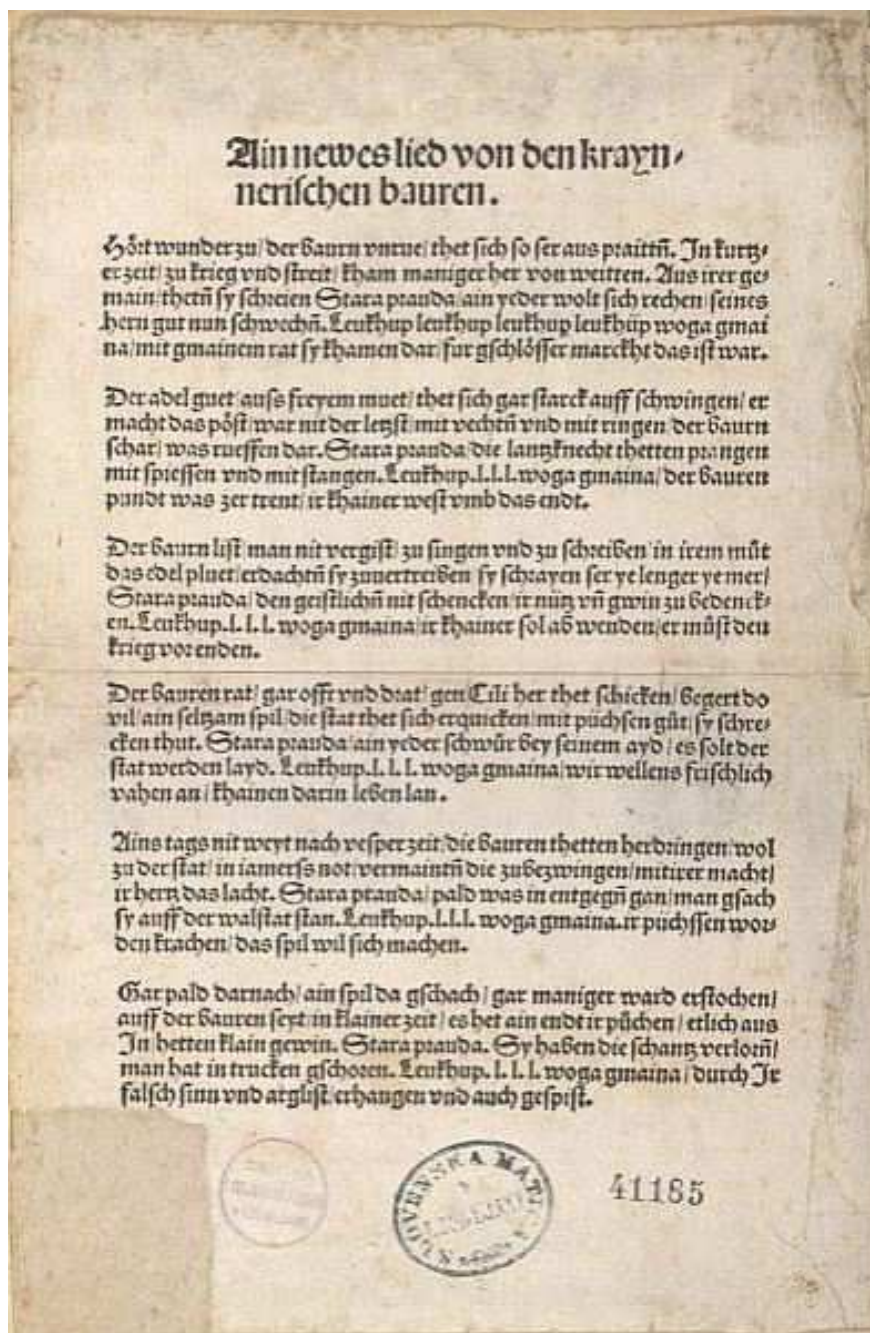 Ain newes lied von den krayn⸗
nerischen bauren.
Hört wunder zu / der baurn vnrue / thet sich so ser aus praittñ. In kurtz⸗
er zeit / zu krieg vnd streit / kham maniger her von weitten. Aus irer ge⸗
main / thetñ sy schreien Stara prauda / ain yeder wolt sich rechen / seines
hern gut nun schwechñ. Leukhup leukhup leukhup leukhup woga gmai
na / mit gmainem rat sy khamen dar / fur gschlösser marckht das ist war.
Der adel guet / auss freyem muet / thet sich gar starck auff schwingen / er
macht das pöst / war nit der letzst / mit vechtñ vnd mit ringen / der baurn
schar / was rueffen dar. Stara prauda / die lantzknecht thetten prangen
mit spiessen vnd mit stangen. Leukhup. l. l. l. woga gmaina / der bauren
pundt was zer trent / ir khainer west vmb das endt.
Der baurn list / man nit vergist / zu singen vnd zu schreiben / in irem müt
das edel pluet / erdachtñ sy zuuertreiben / sy schrayen ser ye lenger ye mer /
Stara prauda / den geistlichñ nit schencken / ir nütz vñ gwin zu bedenck⸗
en. Leukhup. l. l. l. woga gmaina / ir khainer sol ab wenden / er müst den
krieg vor enden.
Der bauren rat / gar offt vnd drat / gen Cili her thet schicken / begert do
vil / ain seltzam spil / die stat thet sich erquicken / mit püchsen güt / sy schre⸗
cken thut. Stara prauda / ain yeder schwür bey seinem ayd / es solt der
stat werden layd. Leukhup. l. l. l. woga gmaina / wir wellens frischlich
vahen an / khainen darin leben lan.
Ains tags nit weyt nach vesper zeit / die bauren thetten herdringen / wol
zu der stat / in iamerss not / vermaintñ die zubezwingen / mit irer macht /
ir hertz das lacht. Stara prauda / pald was in entgegñ gan / man gsach
sy auff der walstat stan. Leukhup. l. l. l. woga gmaina. ir püchssen wor⸗
den krachen / das spil wil sich machen.
Gar pald darnach / ain spil da gschach / gar maniger ward erstochen /
auff der bauren seyt / in klainer zeit / es het ain endt ir püchen / etlich aus
In hetten klain gewin. Stara prauda. Sy haben die schantz verlorñ /
man hat in trucken gschoren. Leukhup. l. l. l. woga gmaina / durch Ir
falsch sinn vnd arglist / erhangen vnd auch gespist.
SLOVENSKA MATICA
41185